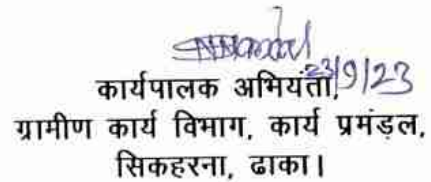 23/9/23
कार्यपालक अभियंता,
ग्रामीण कार्य विभाग, कार्य प्रमंडल,
सिकहरना, ढाका।